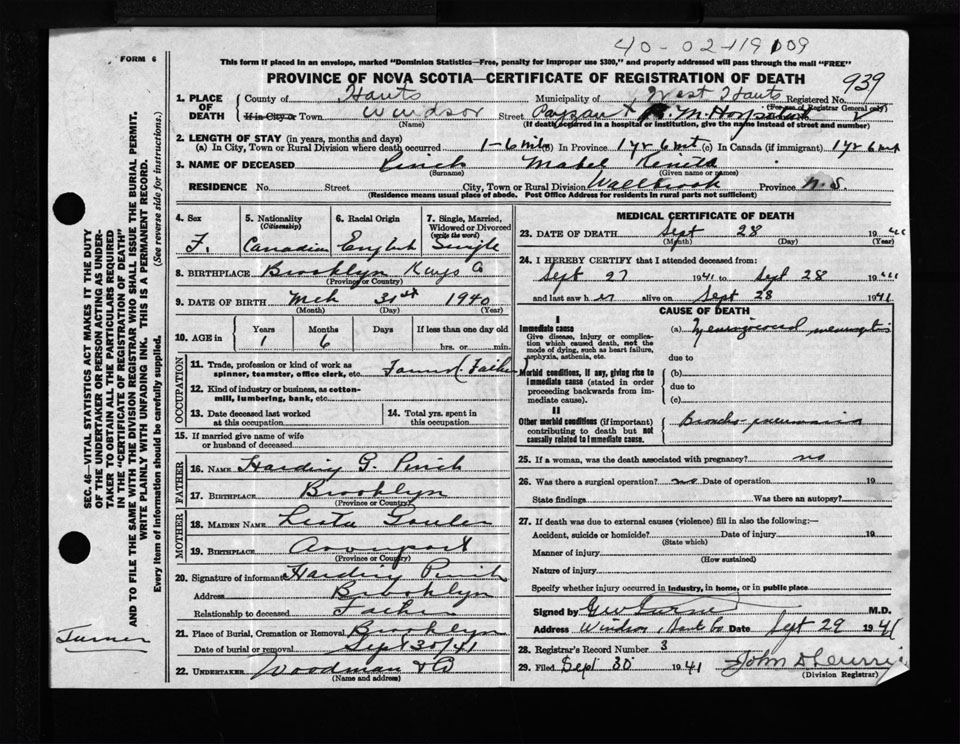 40-02-119109
FORM 6
This form if placed in an envelope, marked "Dominion Statistics—Free, penalty for improper use $300," and properly addressed will pass through the mail "FREE"
PROVINCE OF NOVA SCOTIA—CERTIFICATE OF REGISTRATION OF DEATH
939
1. PLACE OF DEATH County of Hants Municipality of West Hants Registered No.
(For use of Registrar General only)
If in City or Town Windsor Street Payzant M. Hospital
(Name) (If death occurred in a hospital or institution, give the name instead of street and number)
2. LENGTH OF STAY (in years, months and days)
(a) In City, Town or Rural Division where death occurred 1-6 mths (b) In Province 1 yr 6 mt (c) In Canada (if immigrant) 1 yr 6 mt
3. NAME OF DECEASED Pinch Mabel
(Surname) (Given name or names)
RESIDENCE No. Street City, Town or Rural Division Wallbrook Province N.S.
(Residence means usual place of abode. Post Office Address for residents in rural parts not sufficient)
4. Sex 5. Nationality (Citizenship) 6. Racial Origin 7. Single, Married, Widowed or Divorced (write the word)
F. Canadian English Single
8. BIRTHPLACE Brooklyn Kings Co
(Province or Country)
9. DATE OF BIRTH Mch 31st 1940
(Month) (Day) (Year)
10. AGE in Years Months Days If less than one day old
1 6 hrs. or min.
OCCUPATION
11. Trade, profession or kind of work as spinner, teamster, office clerk, etc. Farmer (Father)
12. Kind of industry or business, as cotton-mill, lumbering, bank, etc.
13. Date deceased last worked at this occupation 14. Total yrs. spent in this occupation
15. If married give name of wife or husband of deceased
FATHER
16. NAME Harding G. Pinch
17. BIRTHPLACE Brooklyn
(Province or Country)
MOTHER
18. MAIDEN NAME
19. BIRTHPLACE Avonport
(Province or Country)
20. Signature of informant Harding Pinch
Address Brooklyn
Relationship to deceased Father
21. Place of Burial, Cremation or Removal Brooklyn
Date of burial or removal Sept 30/41
22. UNDERTAKER Woodman & Co
(Name and address)
MEDICAL CERTIFICATE OF DEATH
23. DATE OF DEATH Sept 28 19
(Month) (Day) (Year)
24. I HEREBY CERTIFY that I attended deceased from:
Sept 27 1941 to Sept 28 1941
and last saw her alive on Sept 28 1941
CAUSE OF DEATH
I
Immediate cause
Give disease, injury or complication which caused death, not the mode of dying, such as heart failure, asphyxia, asthenia, etc.
(a) Meningococcal meningitis
due to
Morbid conditions, if any, giving rise to immediate cause (stated in order proceeding backwards from immediate cause).
(b)
due to
(c)
II
Other morbid conditions (if important) contributing to death but not causally related to immediate cause.
Broncho-pneumonia
25. If a woman, was the death associated with pregnancy? no
26. Was there a surgical operation? no Date of operation 19
State findings Was there an autopsy?
27. If death was due to external causes (violence) fill in also the following:—
Accident, suicide or homicide? Date of injury 19
(State which)
Manner of injury
(How sustained)
Nature of injury
Specify whether injury occurred in industry, in home, or in public place
Signed by M.D.
Address Windsor, Hants Co Date Sept 29 1941
28. Registrar's Record Number 3
29. Filed Sept 30 1941
(Division Registrar)
SEC. 46—VITAL STATISTICS ACT MAKES IT THE DUTY
OF THE UNDERTAKER OR PERSON ACTING AS UNDER-
TAKER TO OBTAIN ALL THE PARTICULARS REQUIRED
IN THE "CERTIFICATE OF REGISTRATION OF DEATH"
AND TO FILE THE SAME WITH THE DIVISION REGISTRAR WHO SHALL ISSUE THE BURIAL PERMIT.
WRITE PLAINLY WITH UNFADING INK. THIS IS A PERMANENT RECORD.
Every item of information should be carefully supplied. (See reverse side for instructions.)
Turner